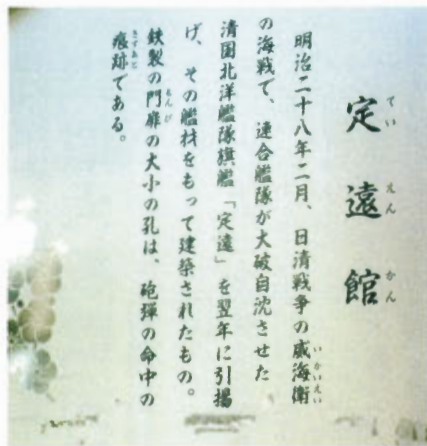 定遠館
ていえんかん
明治二十八年二月、日清戦争の威海衛
いかいえい
の海戦で、連合艦隊が大破自沈させた
清国北洋艦隊旗艦「定遠」を翌年に引揚
げ、その艦材をもって建築されたもの。
鉄製の門扉の大小の孔は、砲弾の命中の
もんぴ
痕跡である。
きずあと